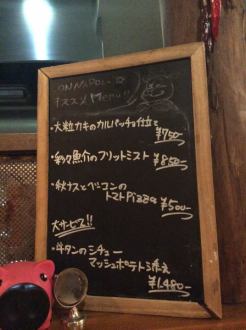 オススメ Menu!!
・大粒カキのカルパッチョ仕立て
¥750-
・彩々魚介のフリットミスト
¥850-
・秋ナスとベーコンの
トマトPizza
¥500-
大サービス!!
・牛タンのシチュー
マッシュポテト添え
¥1,480-